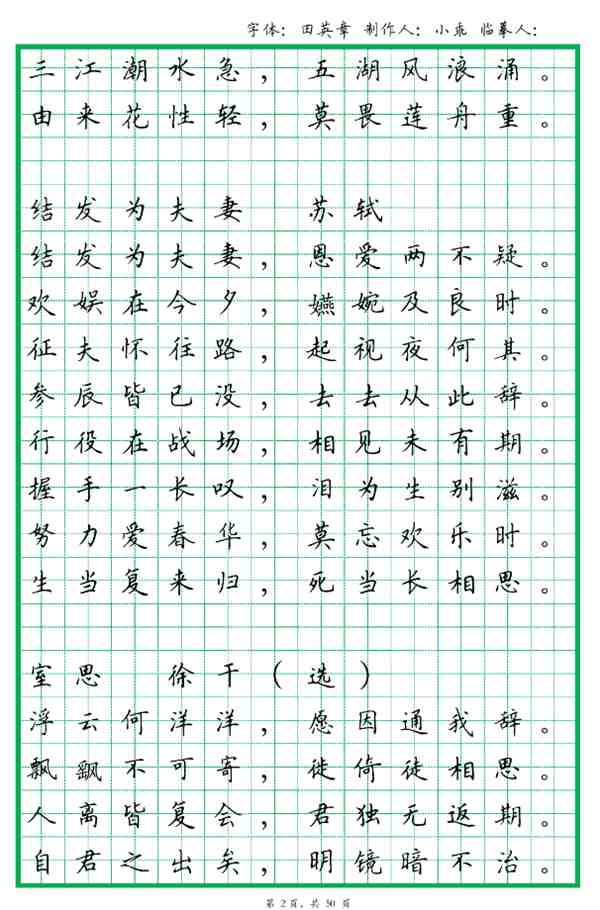 字体：田英章 制作人：小乖 临摹人：
三江潮水急，五湖风浪涌。
由来花性轻，莫畏莲舟重。
结发为夫妻 苏轼
结发为夫妻，恩爱两不疑。
欢娱在今夕，嬿婉及良时。
征夫怀往路，起视夜何其。
参辰皆已没，去去从此辞。
行役在战场，相见未有期。
握手一长叹，泪为生别滋。
努力爱春华，莫忘欢乐时。
生当复来归，死当长相思。
室思 徐干（选）
浮云何洋洋，愿因通我辞。
飘飖不可寄，徙倚徒相思。
人离皆复会，君独无返期。
自君之出矣，明镜暗不治。
第 2 页，共 50 页